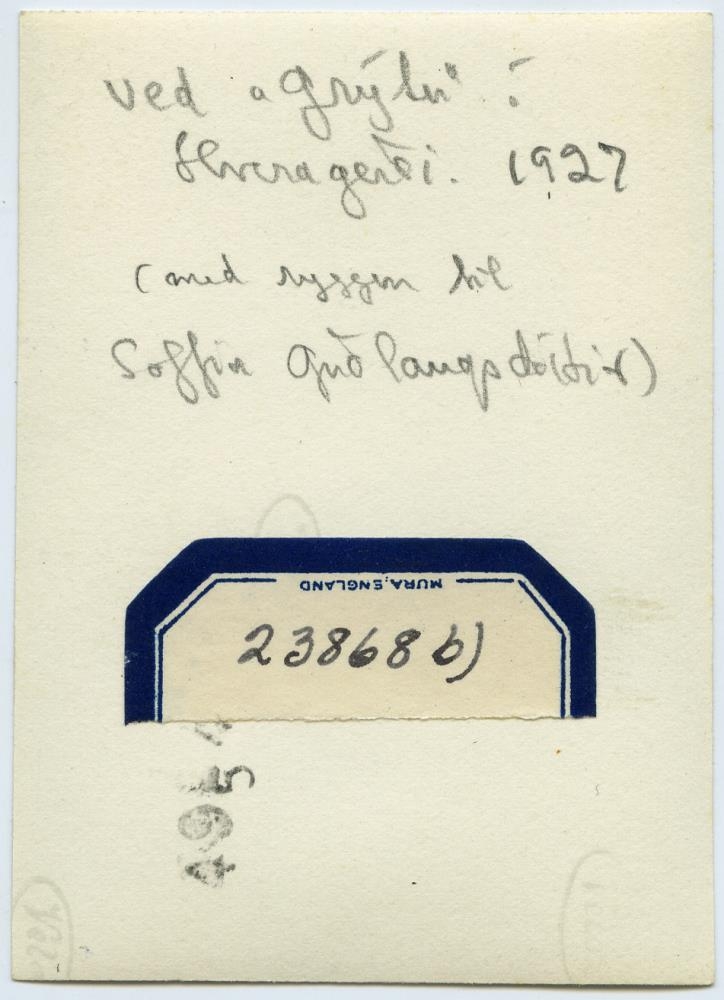 ved "Grýlu" i
Hveragerði. 1927
(med ryggen til
Soffia Guðlaugsdóttir)
MURA, ENGLAND
23868 b)
495